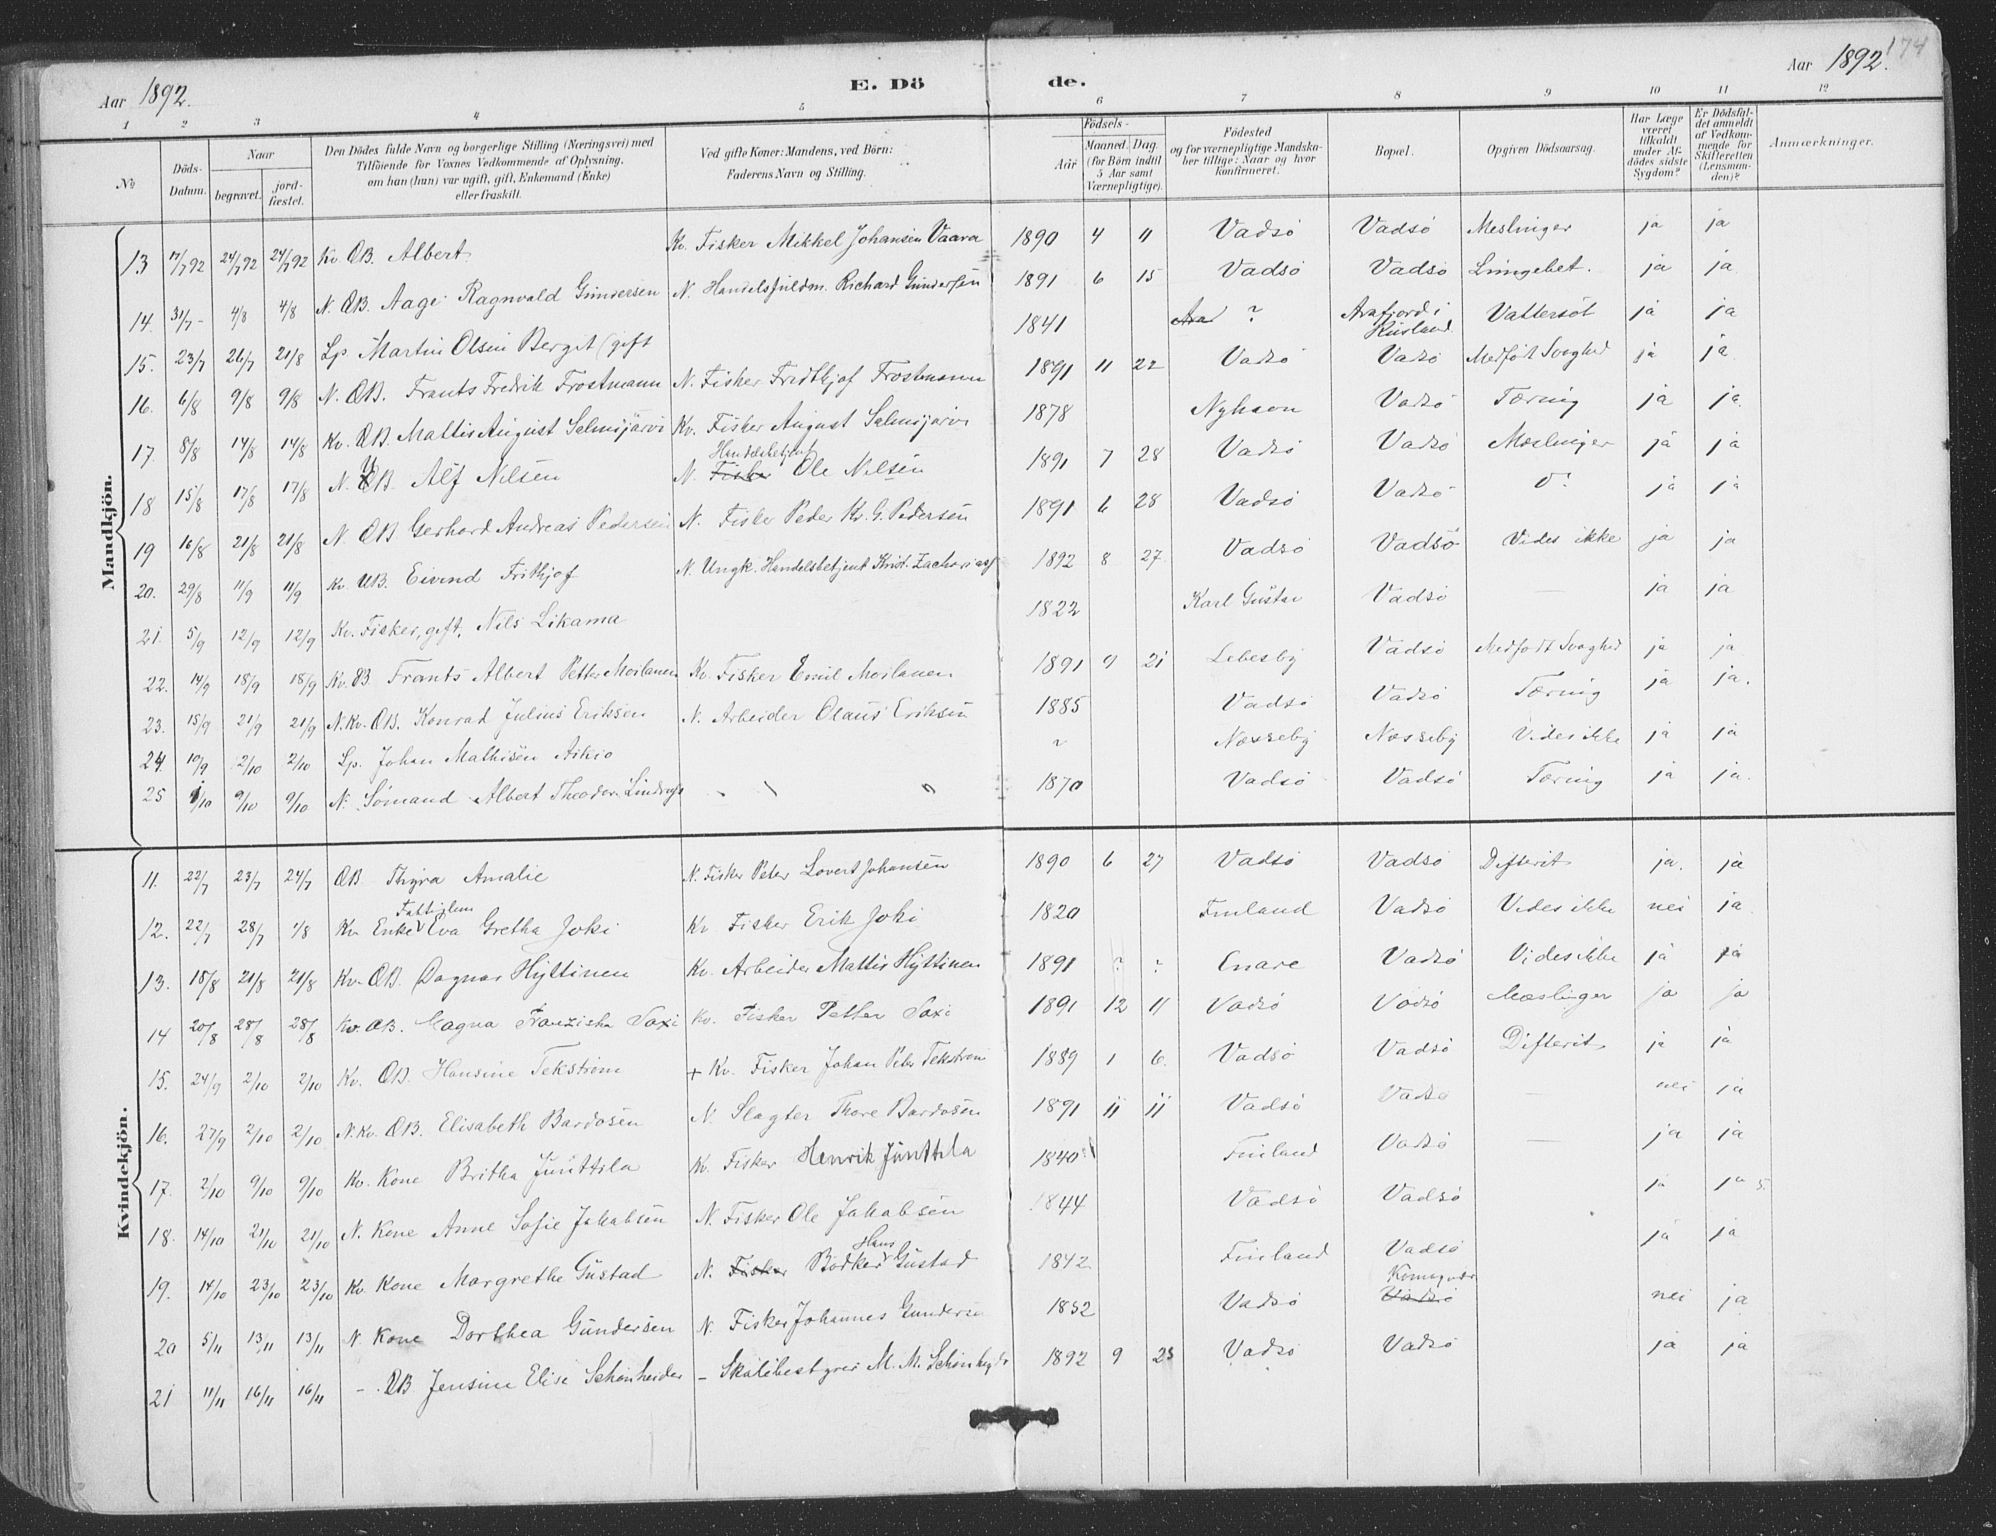 Aar 1892.
E. Döde.
Aar 1892.
174
1 2 3 4 5 6 7 8 9 10 11 12
No
Döds-Datum.
Naar
begravet.
jordfæstet.
Den Dödes fulde Navn og borgerlige Stilling (Næringsvei) med Tilföiende for Voxnes Vedkommende af Oplysning, om han (hun) var ugift, gift, Enkemand (Enke) eller fraskilt.
Ved gifte Koner: Mandens, ved Börn: Faderens Navn og Stilling.
Födsels-
Aar
Maaned. Dag. (for Börn indtil 5 Aar samt Værnepligtige).
Födested og for værnepligtige Mandskaber tillige: Naar og hvor konfirmeret.
Bopæl.
Opgiven Dödsaarsag.
Har Læge været tilkaldt under Afdödes sidste Sygdom?
Er Dödsfaldet anmeldt af Vedkommende for Skifteretten (Lensmanden)?
Anmærkninger.
Mandkjön.
13 17/7 92 24/7 92 24/7 92 Kv. ÆB. Albert Kv. Fisker Mikkel Johansen Vaara 1890 4 11 Vadsö Vadsö Meslinger ja ja
14. 31/7 - 4/8 4/8 N. ÆB. Aage Ragnvald Gundersen N. Handelsfuldm. Richard Gundersen 1891 6 15 Vadsö Vadsö Lungebet. ja ja
15. 23/7 26/7 21/8 Lp. Martin Olsen Berget (gift 1841 ? Arafjord i Rusland Vattersot ja ja
16. 6/8 9/8 9/8 N. ÆB. Frants Fredrik Frostmann N. Fisker Fridthjof Frostmann 1891 11 22 Vadsö Vadsö Medfödt Svaghed ja ja
17. 8/8 14/8 14/8 Kv. ÆB. Mattis August Salmijärvi Kv. Fisker August Salmijarvi 1878 Nyhavn Vadsö Tæring ja ja
18 15/8 17/8 17/8 N. UB. Alf Nilsen N. Handelsbetjent Ole Nilsen 1891 7 28 Vadsö Vadsö Mæslinger ja ja
19 16/8 21/8 21/8 N ÆB Gerhard Andreas Pedersen N. Fisker Peder Kr. G. Pedersen 1891 6 28 Vadsö Vadsö do ja ja
20. 29/8 11/9 11/9 Kv. UB. Eivind Frithjof N. Ungk. Handelsbetjent Krist. Zachariass 1892 8 27 Vadsö Vadsö Vides ikke ja ja
21. 5/9 12/9 12/9 Kv. Fisker, gift, Nils Likama 1822 Karl Gustav Vadsö — ja ja
22. 14/9 18/9 18/9 Kv. ÆB Frants Albert Petter Moilanen Kv. Fisker Emil Moilanen 1891 9 21 Lebesby Vadsö Medfödt Svaghed ja ja
23. 15/9 21/9 21/9 N. Kv. ÆB. Konrad Julius Eriksen N. Arbeider Olaus Eriksen 1885 Vadsö Vadsö Tæring ja ja.
24. 10/9 2/10 2/10 Lp. Johan Mathisen Aikio Næsseby Næsseby Vides ikke ja ja
25 1/10 9/10 9/10 N. Sömand Albert Theodor 1870 Vadsö Vadsö Tæring ja ja
Kvindekjön.
11. 22/7 23/7 24/7 ÆB. Thyra Amalie N. Fisker Peter Lovert Johansen 1890 6 27 Vadsö Vadsö Difterit ja. ja
12. 22/7 28/7 1/8 Kv. Enke Fattiglem Eva Gretha Joki Kv Fisker Erik Joki 1820 Finland Vadsö Vides ikke nei ja
13. 18/8 21/8 21/8 Kv. ÆB. Dagnar Hyttinen Kv. Arbeider Mattis Hyttinen 1891 ? ? Enare Vadsö Vides ikke ja ja
14 20/8 28/8 28/8 Kv. ÆB. Magna Franziska Saxi Kv. Fisker Petter Saxi 1891 12 11 Vadsö Vadsö Mæslinger ja ja
15. 24/9 2/10 2/10 Kv. ÆB. Hansine Tekström + Kv. Fisker Johan Peter Tekström 1889 1 6 Vadsö Vadsö Difterit ja ja
16. 27/9 2/10 2/10 N. Kv. ÆB. Elisabeth Bardosen N. Slagter Thore Bardosen 1891 11 11 Vadsö Vadsö — nei ja
17. 2/10 9/10 9/10 Kv. Kone Britha Junttila Kv. Fisker Henrik Junttila 1840 Finland Vadsö — ja ja
18. 14/10 21/10 21/10 N. Kone Anne Sofie Jakobsen N. Fisker Ole Jakobsen 1844 Vadsö Vadsö ja ja
19. 14/10 23/10 23/10 Kv. Kone Margrethe Gustad N. Fisker Bödker Hans Gustad 1842 Finland Vadsö ja ja
20 5/11 13/11 13/11 N. Kone Dorthea Gundersen N. Fisker Johannes Gundersen 1852 Vadsö Vadsö nei ja
21 11/11 16/11 16/11 - ÆB Jensine Elise Schönheider - Skolebestyrer M. M. Schönheyder 1892 9 25 Vadsö Vadsö ja ja